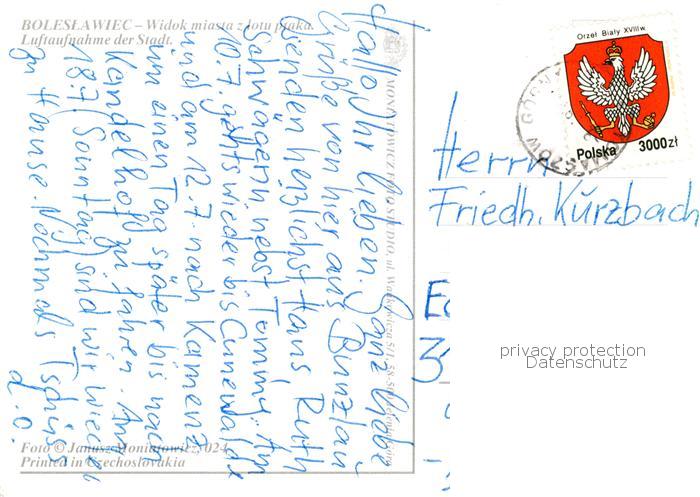 BOLESŁAWIEC – Widok miasta z lotu ptaka.
Luftaufnahme der Stadt.
Hallo Ihr Lieben. Ganz liebe
Grüße von hier aus Bunzlau
senden herzlichst Hans Ruth
Schwägerin nebst Tommy. Am
10.7. gehts wieder bis Cunewalde
und am 12.7. nach Kamenz
um einen Tag später bis nach
Kandelhof zu fahren. Am
18.7. (Sonntag) sind wir wieder
zu Hause. Nochmals Tschüs
d.O.
Foto © Janusz Moniatowicz, 024
Printed in Czechoslovakia
MONIATOWICZ FOTO STUDIO,
Orzeł Biały XVIII w.
Polska 3000 zł
Herrn
Friedh. Kurzbach
3
privacy protection
Datenschutz